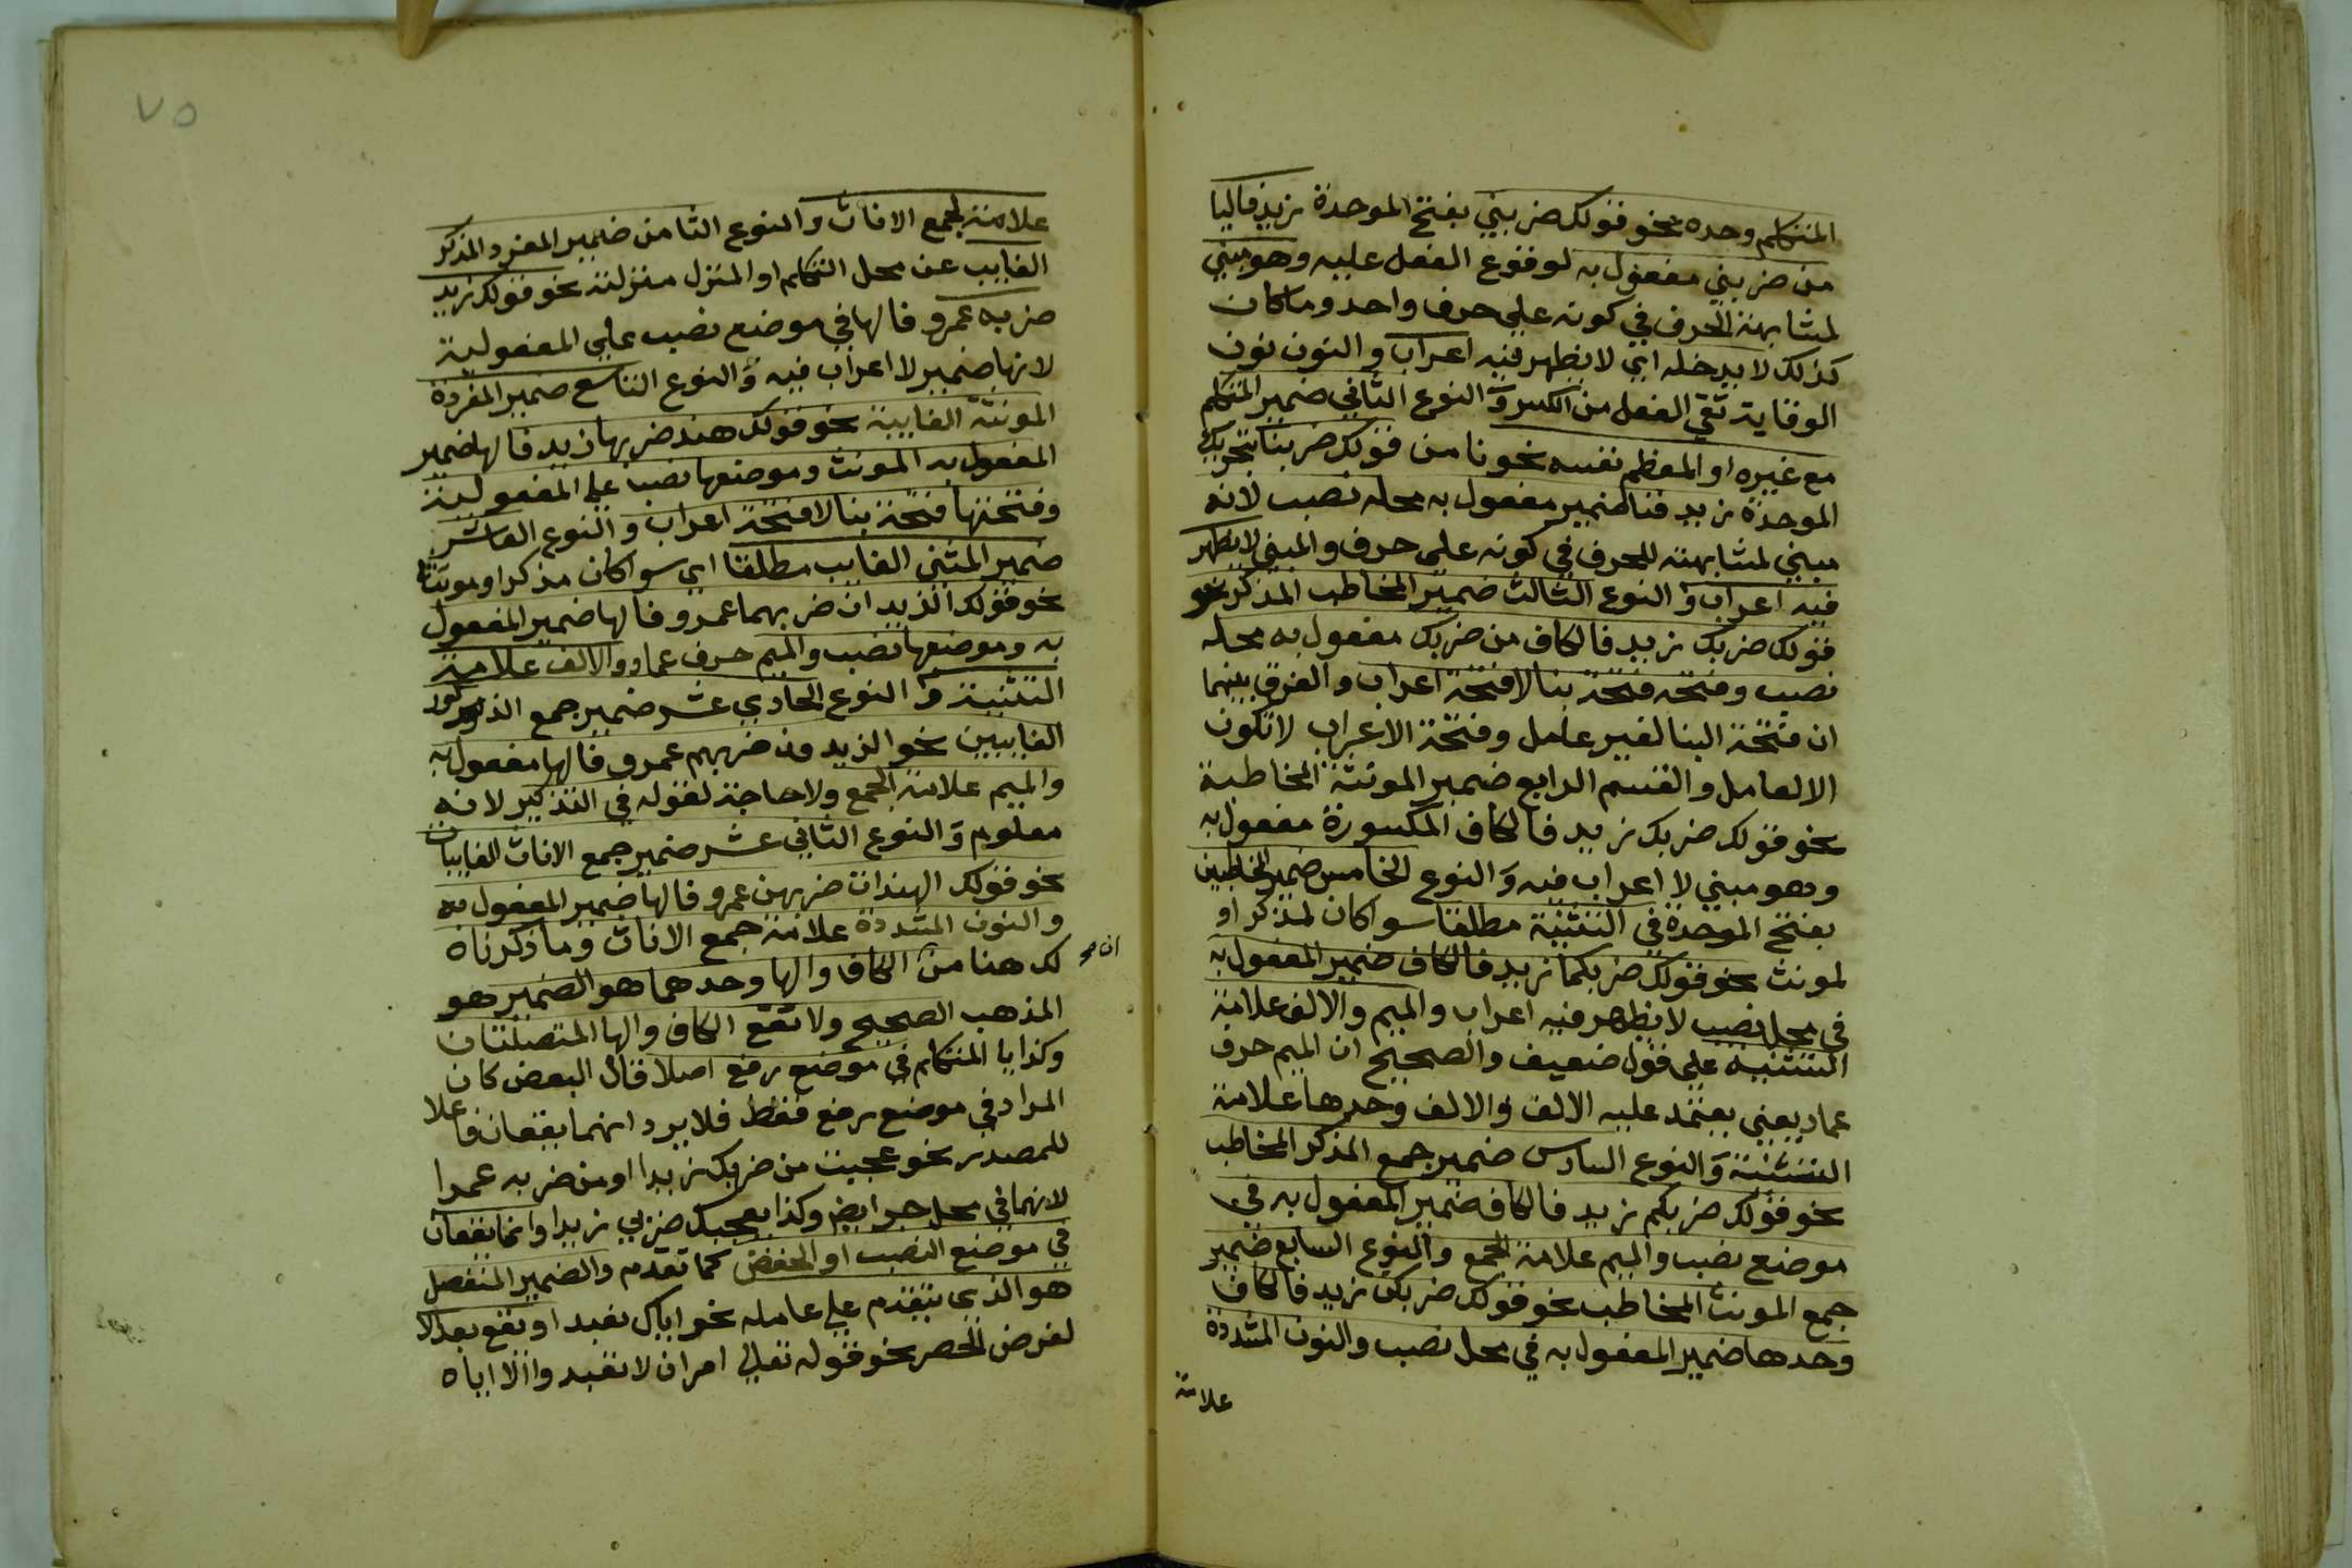 المتكلم وحده نحو قولك ضربني بفتح الموحدة زيد فاليا
من ضربني مفعول به لوقوع الفعل عليه وهو مبني
لمشابهته الحرف في كونه على حرف واحد وما كان
كذلك لا يدخله اي لا يظهر فيه اعراب والنون نون
الوقاية تقي الفعل من الكسر والنوع الثاني ضمير المتكلم
مع غيره او المعظم نفسه نحو نا من قولك ضربنا بتحريك
الموحدة زيد فنا ضمير مفعول به محله نصب لانه
مبني لمشابهته للحرف في كونه على حرف والمبني لا يظهر
فيه اعراب والنوع الثالث ضمير المخاطب المذكر نحو
قولك ضربك زيد فالكاف من ضربك مفعول به محله
نصب وفتحه فتحة بنا لا فتحة اعراب والفرق بينهما
ان فتحة البنا لغير عامل وفتحة الاعراب لا تكون
الا لعامل والقسم الرابع ضمير المونثة المخاطبة
نحو قولك ضربك زيد فالكاف المكسورة مفعول به
وهو مبني لا اعراب فيه والنوع الخامس ضمير المخاطبين
بفتح الموحدة في التثنية مطلقا سوا كان لمذكر او
لمونث نحو قولك ضربكما زيد فالكاف ضمير المفعول به
في محل نصب لا يظهر فيه اعراب والميم والالف علامة
التثنية على قول ضعيف والصحيح ان الميم حرف
عماد يعني يعتمد عليه الالف والالف وحدها علامة
التثنية والنوع السادس ضمير جمع المذكر المخاطب
نحو قولك ضربكم زيد فالكاف ضمير المفعول به في
موضع نصب والميم علامة الجمع والنوع السابع ضمير
جمع المونث المخاطب نحو قولك ضربكن زيد فالكاف
وحدها ضمير المفعول به في محل نصب والنون المشددة
علامة
٧٥
علامة لجمع الاناث والنوع الثامن ضمير المفرد المذكر
الغايب عن محل التكلم او المنزل منزلته نحو قولك زيد
ضربه عمرو فالها في موضع نصب علي المفعولية
لانها ضمير لا اعراب فيه والنوع التاسع ضمير المفردة
المونثة الغايبة نحو قولك هند ضربها زيد فالها ضمير
المفعول به المونث وموضعها نصب علي المفعولية
وفتحتها فتحة بنا لا فتحة اعراب والنوع العاشر
ضمير المثني الغايب مطلقا اي سوا كان مذكرا او مونثا
نحو قولك الزيدان ضربهما عمرو فالها ضمير المفعول
به وموضعها نصب والميم حرف عماد والالف علامة
التثنية والنوع الحادي عشر ضمير جمع الذكور
الغايبين نحو الزيدون ضربهم عمرو فالها مفعول به
والميم علامة الجمع ولا حاجة لقوله في التذكير لانه
معلوم والنوع الثاني عشر ضمير جمع الاناث الغايبات
نحو قولك الهندات ضربهن عمرو فالها ضمير المفعول به
والنون المشددة علامة جمع الاناث وما ذكرناه
لك هنا من ان الكاف والها وحدهما هو الضمير هو
المذهب الصحيح ولا تقع الكاف والها المتصلتان
وكذا يا المتكلم في موضع رفع اصلا قال البعض كان
المراد في موضع رفع فقط فلا يرد انهما يقعان فاعلا
للمصدر نحو عجبت من ضربك زيدا او من ضربه عمرا
لانهما في محل جر ايض وكذا يعجبك ضربي زيدا وانما يقعان
في موضع النصب او الخفض كما تقدم والضمير المنفصل
هو الذي يتقدم علي عامله نحو اياك نعبد او يقع بعد الا
لغرض الحصر نحو قوله تعالي امر ان لا تعبدوا الا اياه